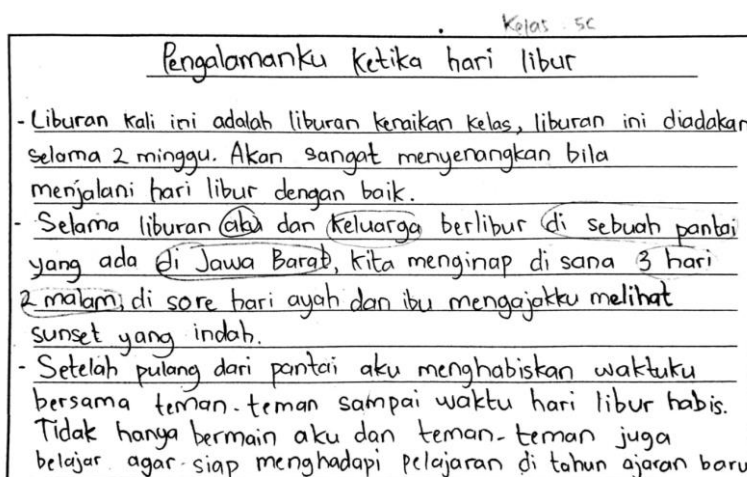 Kelas : 5C
Pengalamanku ketika hari libur
- Liburan kali ini adalah liburan kenaikan kelas, liburan ini diadakan
selama 2 minggu. Akan sangat menyenangkan bila
menjalani hari libur dengan baik.
- Selama liburan aku dan keluarga berlibur di sebuah pantai
yang ada di Jawa Barat, kita menginap di sana 3 hari
2 malam, di sore hari ayah dan ibu mengajakku melihat
sunset yang indah.
- Setelah pulang dari pantai aku menghabiskan waktuku
bersama teman-teman sampai waktu hari libur habis.
Tidak hanya bermain aku dan teman-teman juga
belajar agar siap menghadapi pelajaran di tahun ajaran baru